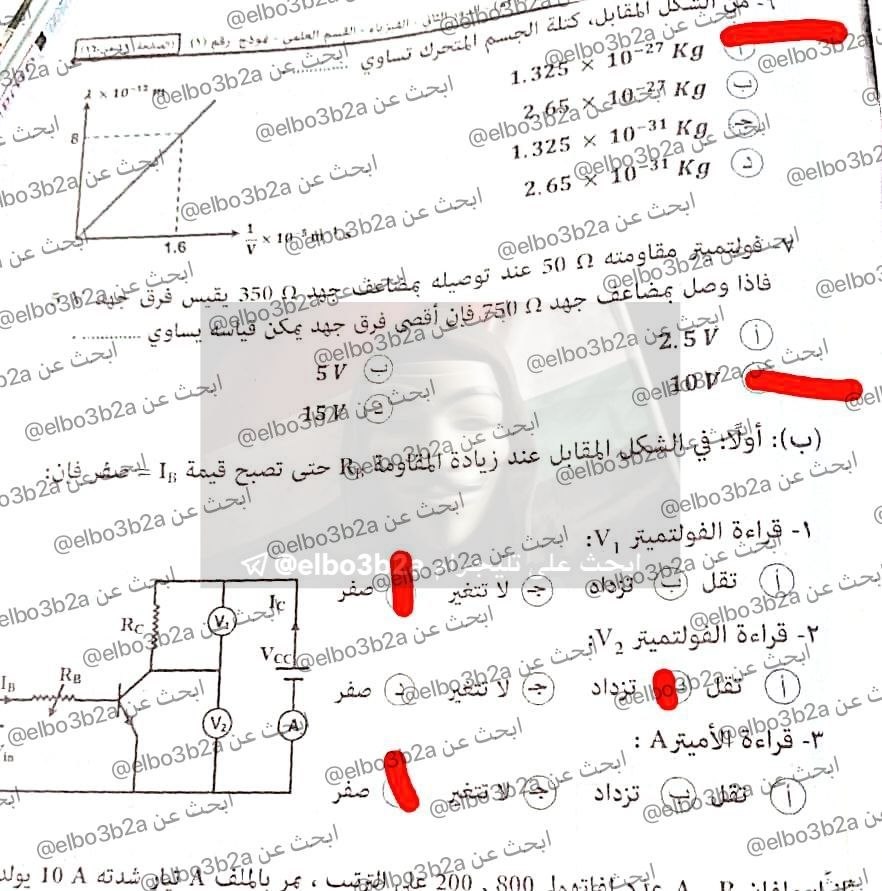 الدور الثاني - الفيزياء - القسم العلمي - نموذج رقم (١)
٦- من الشكل المقابل، كتلة الجسم المتحرك تساوي ............
أ
1.325 × 10⁻²⁷ Kg
ب 2.65 × 10⁻²⁷ Kg
جـ 1.325 × 10⁻³¹ Kg
د 2.65 × 10⁻³¹ Kg
λ × 10⁻¹² m
8
1.6
1/V × 10⁻⁵ m⁻¹ s
٧- فولتميتر مقاومته 50 Ω عند توصيله بمضاعف جهد 350 Ω يقيس فرق جهد
فاذا وصل بمضاعف جهد 750 Ω فإن أقصى فرق جهد يمكن قياسه يساوي ............ .
أ 2.5 V
ب 5 V
10 V
د 15 V
(ب): أولًا: في الشكل المقابل عند زيادة المقاومة R_B حتى تصبح قيمة I_B = صفر فإن:
١- قراءة الفولتميتر V₁:
أ تقل ب تزداد جـ لا تتغير صفر
٢- قراءة الفولتميتر V₂:
أ تقل تزداد جـ لا تتغير د صفر
٣- قراءة الأميتر A :
أ تقل ب تزداد جـ لا تتغير صفر
R_C
V₁
I_C
V_CC
I_B
R_B
V₂
A
V_in
200 ، 800 على الترتيب ، يمر بالملف A تيار شدته 10 A يولد
ابحث عن @elbo3b2a
ابحث على تليجرام @elbo3b2a